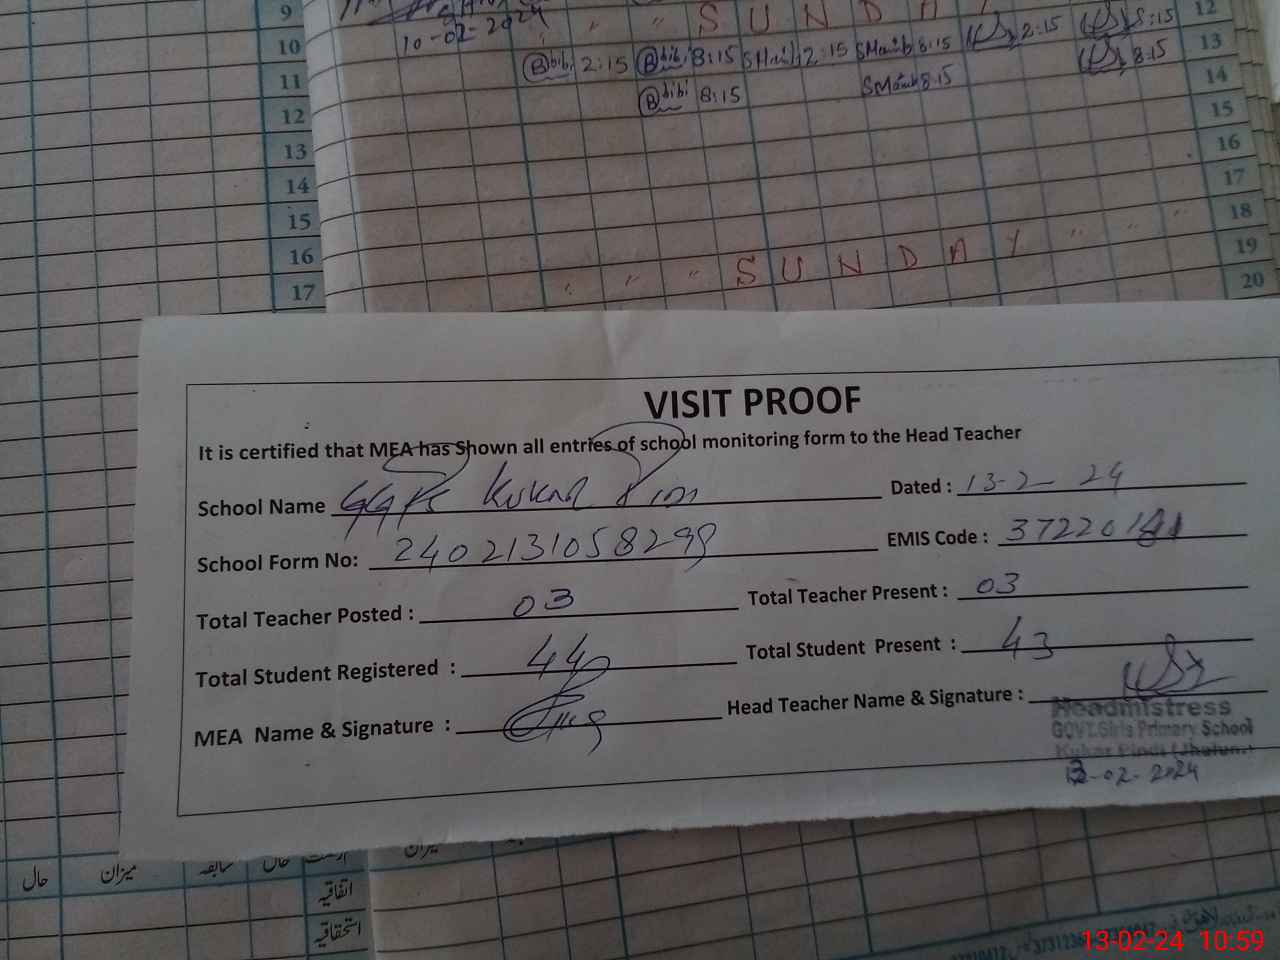 9
10-02-2024
10
11
12
13
14
15
16
17
" " S U N D A Y
12
Bbibi 2:15 Bbibi 8:15 SMaib 2:15 SMaib 8:15 2:15 8:15
13
Bbibi 8:15 SMaib 8:15 8:15
14
15
16
17
18
" " " S U N D A Y " " "
19
20
VISIT PROOF
It is certified that MEA has Shown all entries of school monitoring form to the Head Teacher
School Name GGPS Kukar Pindi Dated : 13-2-24
School Form No: 2402131058298 EMIS Code : 37220181
Total Teacher Posted : 03 Total Teacher Present : 03
Total Student Registered : 44 Total Student Present : 43
MEA Name & Signature : Head Teacher Name & Signature :
Headmistress
GOVT.Girls Primary School
Kukar Pindi (Jhelum)
13-02-2024
حال میزان سابقہ حال میزان
اتفاقیہ
استحقاقیہ
13-02-24 10:59